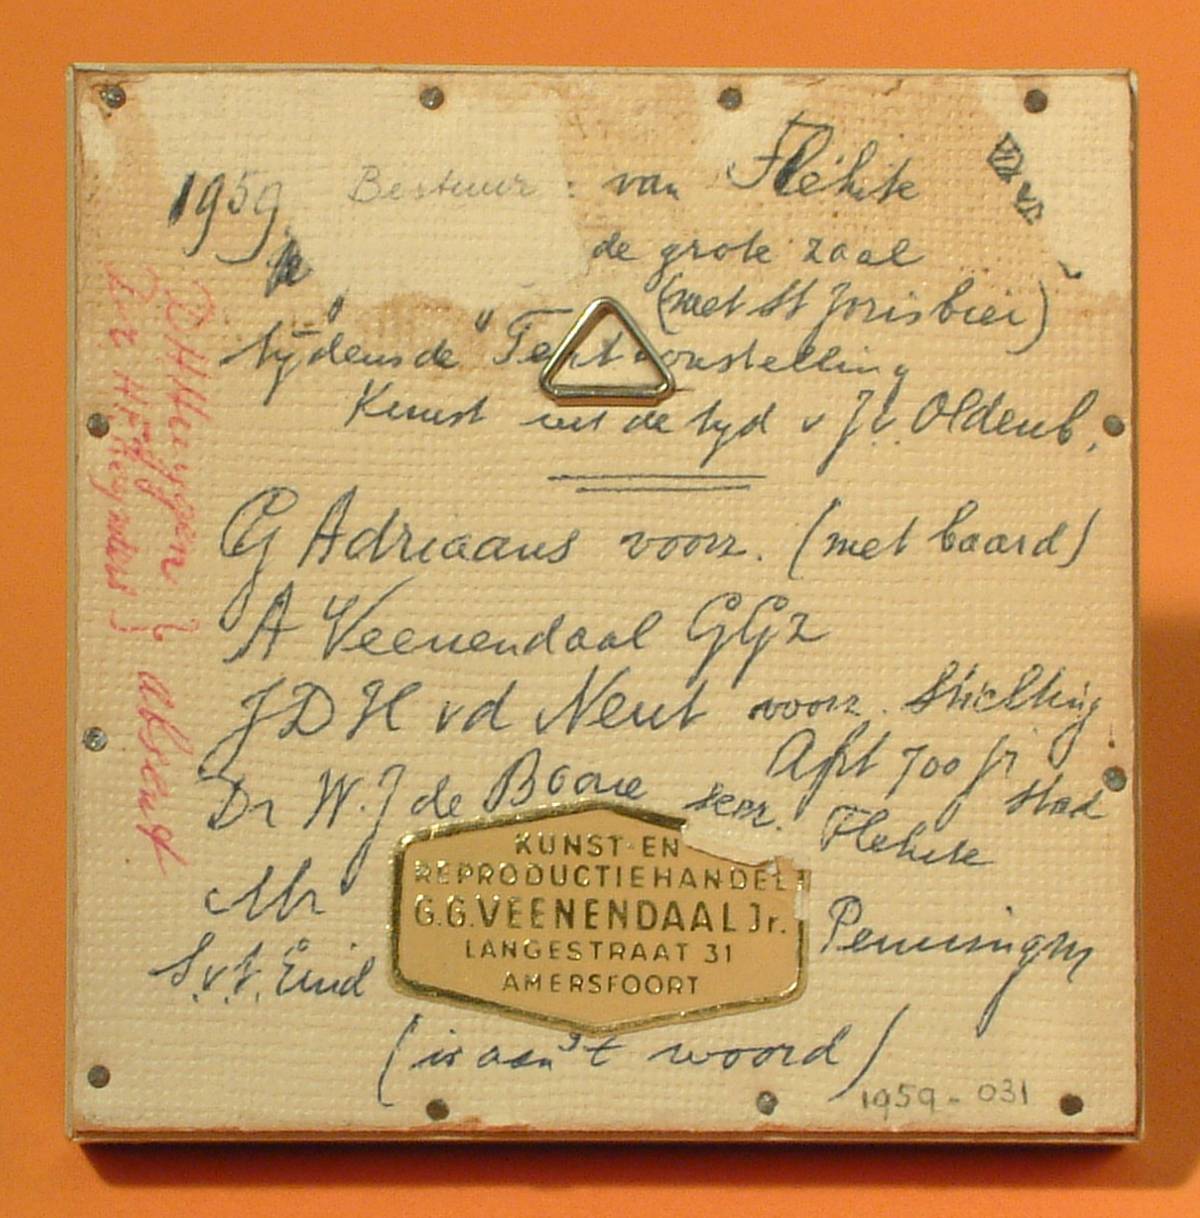 1959 Bestuur van Flehite
de grote zaal
(met St Jorisbier)
tijdens de "Tentoonstelling
Kunst uit de tyd v J.v. Oldenb.
CG Adriaans voorz. (met baard)
A Veenendaal GGz
JDH vd Neut voorz. Stichting
Afrt 700 jr
stad
Dr W.J de Boone secr. Flehite
Mr
S.v.t. Eind Penningm
(is aan 't woord)
KUNST-EN
REPRODUCTIEHANDEL
G.G.VEENENDAAL Jr.
LANGESTRAAT 31
AMERSFOORT
1959-031
absent